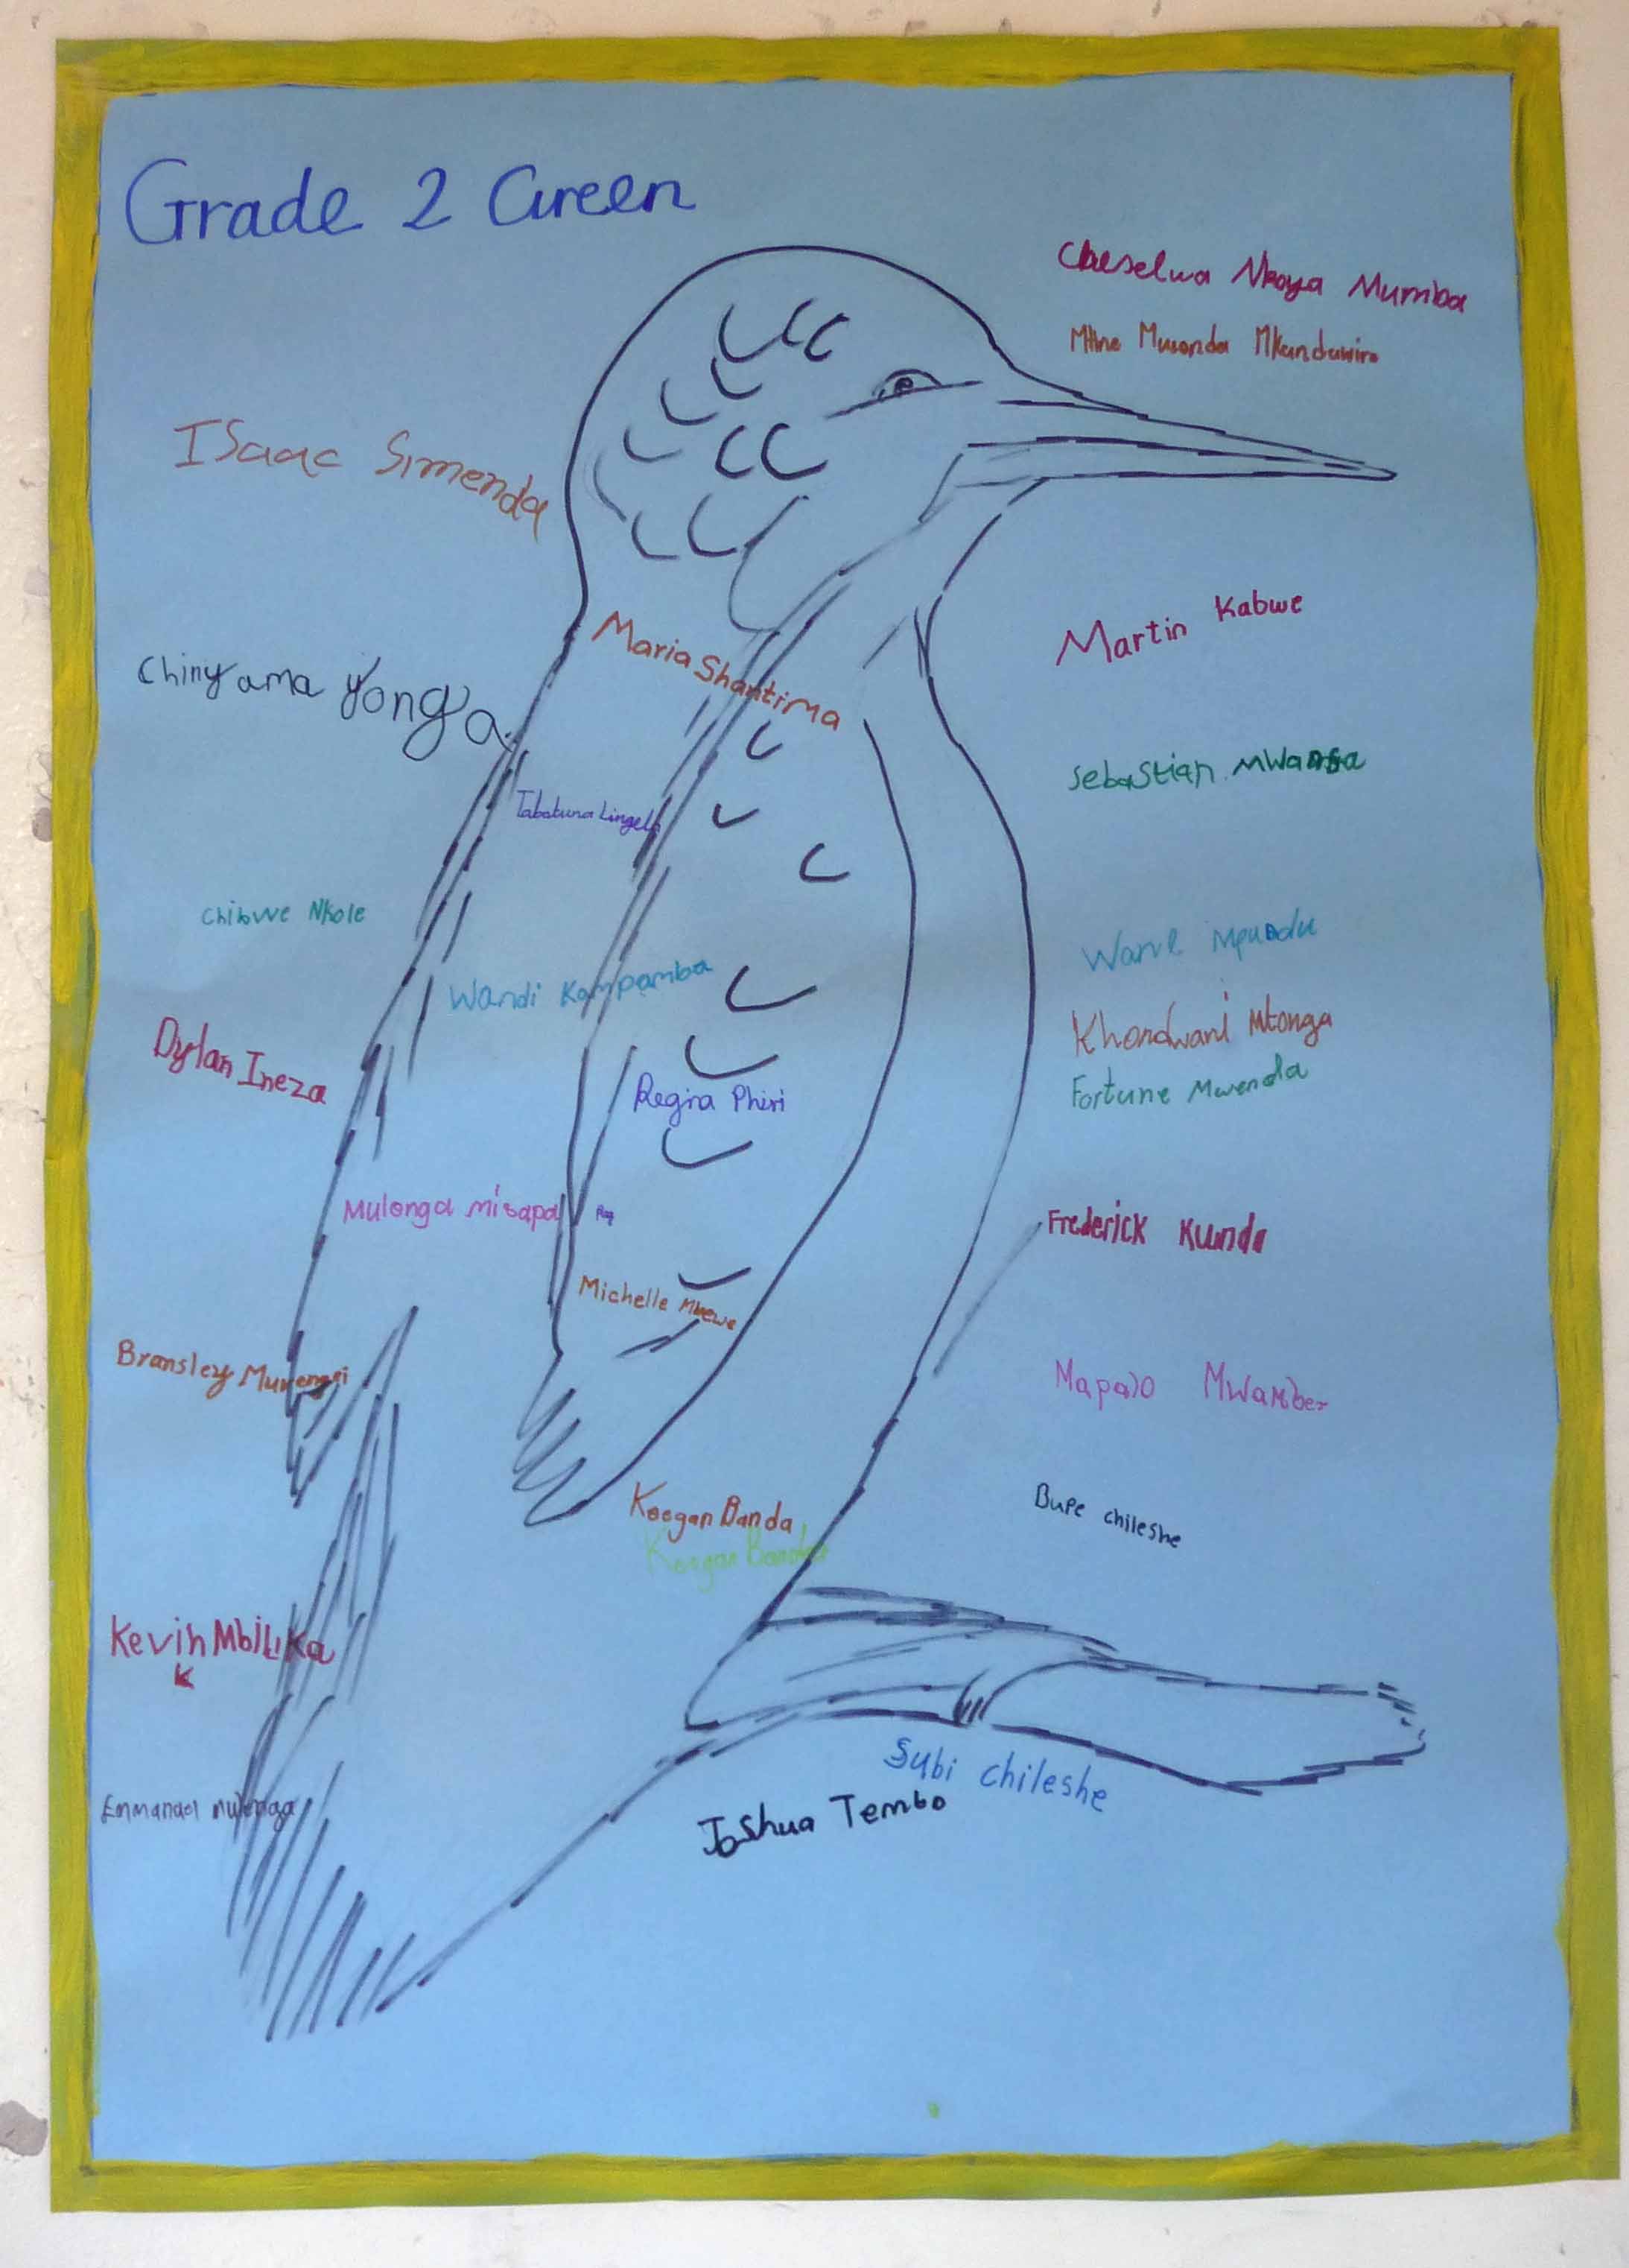 Grade 2 Green
Cheselwa Nkoya Mumba
Musonda Mkandawire
Isaac Simenda
Martin Kabwe
Maria Shantima
Chinyama Yonga
Sebastian Mwansa
Tabatuna Lingela
Chibwe Nkole
Wandi Kampamba
Khondwani Mtonga
Dylan Ineza
Fortune Mwenda
Regina Phiri
Mulenga misapa
Frederick Kunda
Michelle Mbewe
Bransley
Mapalo
Keegan Banda
Keegan Banda
Bupe chileshe
Kevin Mbilika
K
Subi chileshe
Emmanael mulenga
Joshua Tembo